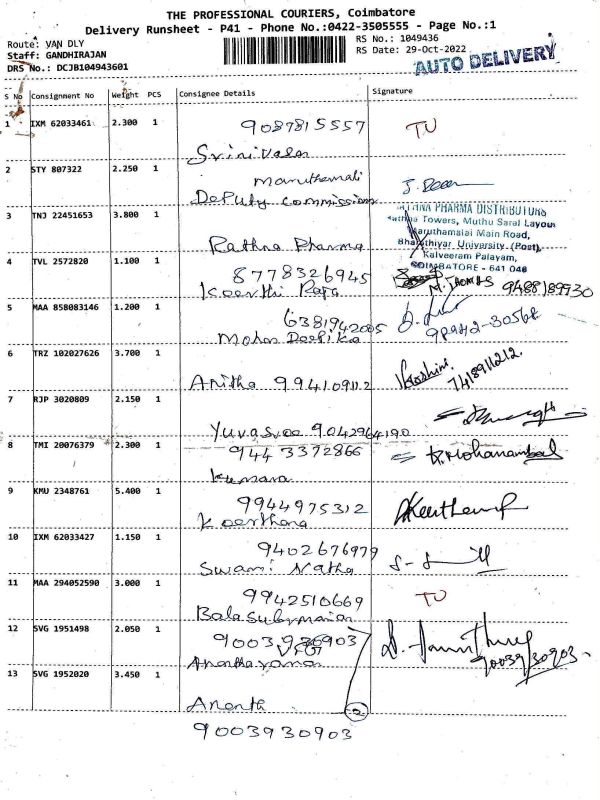 THE PROFESSIONAL COURIERS, Coimbatore
Delivery Runsheet - P41 - Phone No.:0422-3505555 - Page No.:1
Route: VAN DLY
Staff: GANDHIRAJAN
DRS No.: DCJB104943601
RS No.: 1049436
RS Date: 29-Oct-2022
AUTO DELIVERY
S No Consignment No Weight PCS Consignee Details Signature
1 IXM 62033461 2.300 1 9087815557 TU
Srinivasan
2 STY 807322 2.250 1 Maruthamali
Deputy Commission
3 TNJ 22451653 3.800 1
Rathna Pharma
RATHNA PHARMA DISTRIBUTORS
Rathna Towers, Muthu Saral Layout
Maruthamalai Main Road,
Bharathiyar University (Post),
Kalveeram Palayam,
COIMBATORE - 641 046
4 TVL 2572820 1.100 1 8778326945
Keerthi Raja
9488189930
5 MAA 858083146 1.200 1 6381942005
Mohan Deepika
98942-30568
6 TRZ 102027626 3.700 1
Anitha 994109112
7418911212
7 RJP 3020809 2.150 1
Yuvasree 9042964190
8 TMI 20076379 2.300 1 9443372866 R. Mohanambal
Kumara
9 KMU 2348761 5.400 1 9944975312
Keerthana
10 IXM 62033427 1.150 1 9402676979
Swami Natha
11 MAA 294052590 3.000 1 9942510669 TU
Balasubrmanian
12 SVG 1951498 2.050 1 9003930903
Anantharaman
90039/30903
13 SVG 1952020 3.450 1
Ananth
2
9003930903